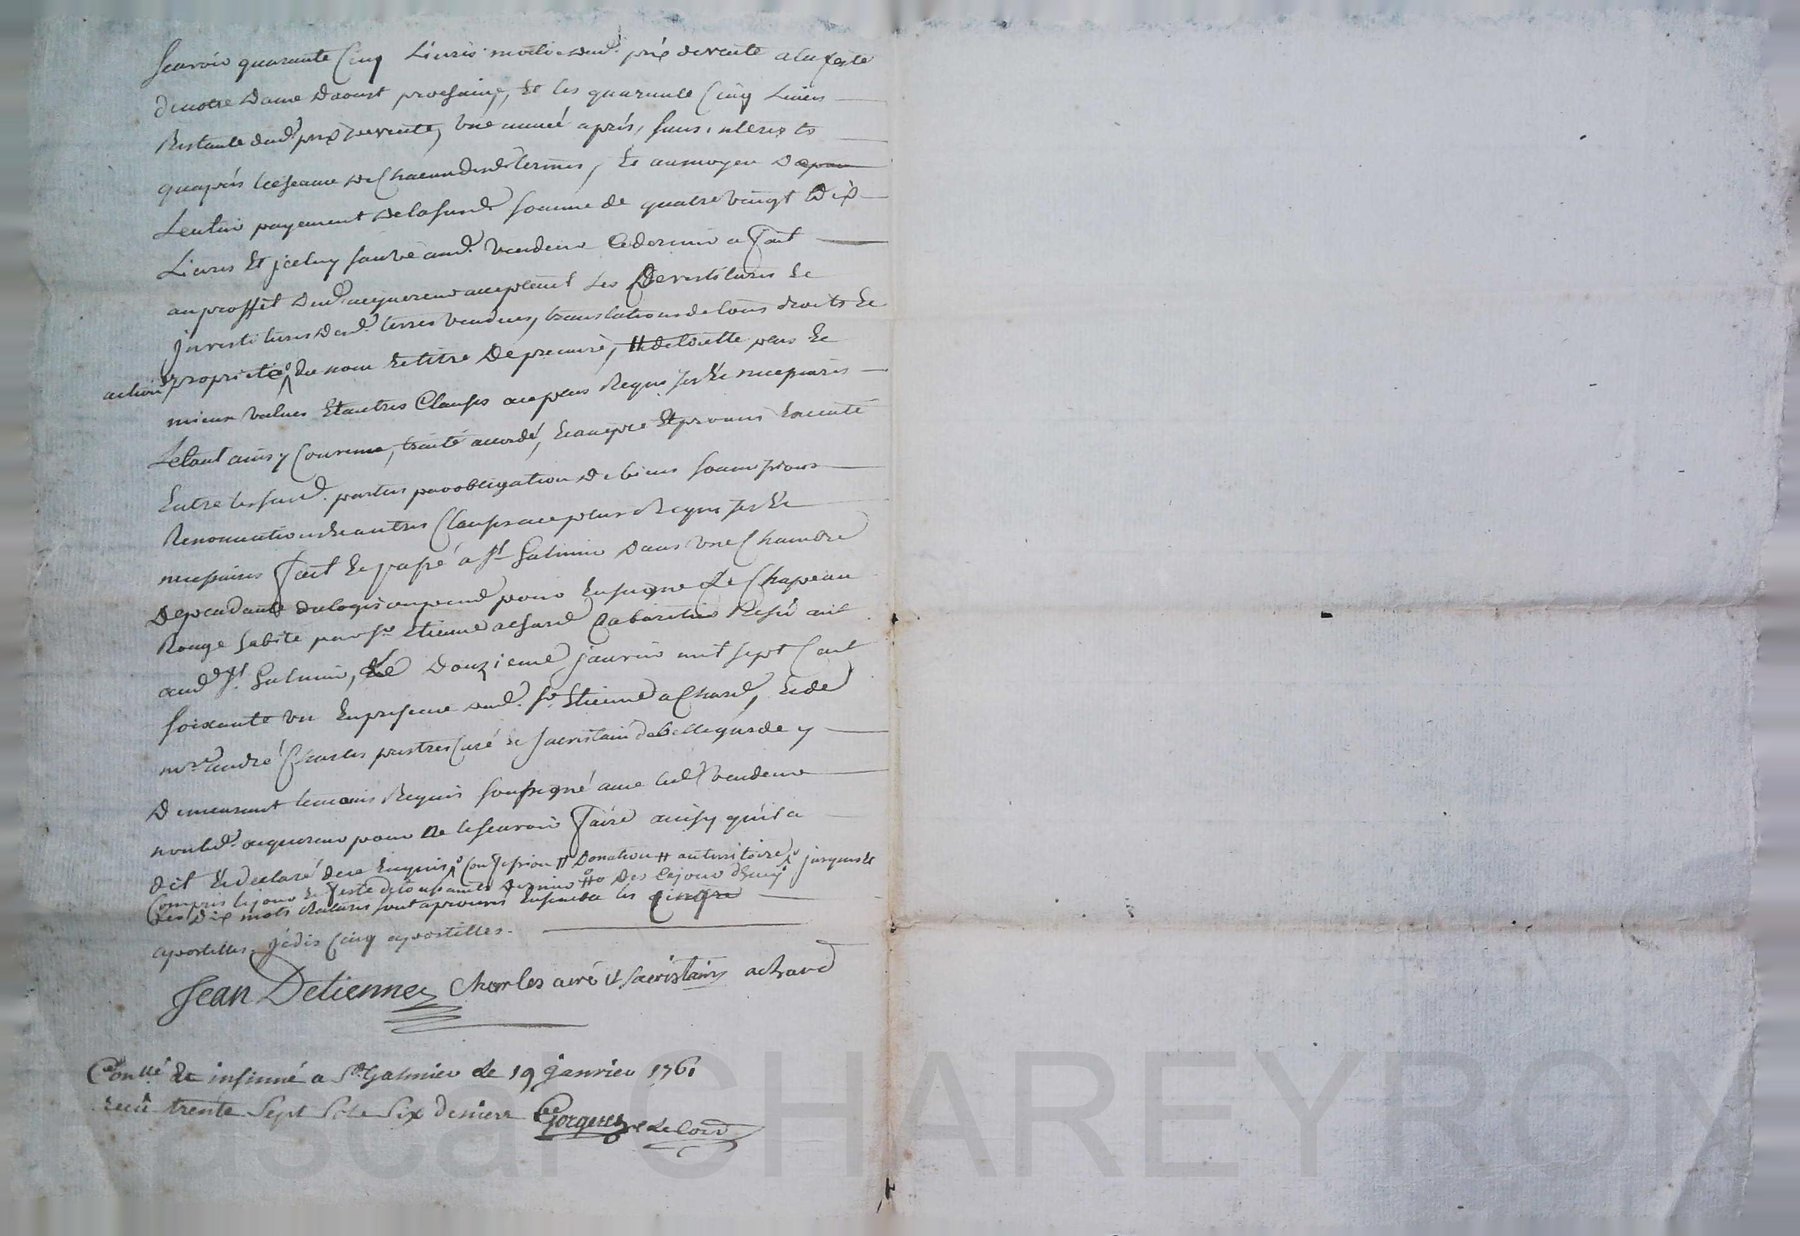 scavoir quarante Cinq Livres moitié dud. prix de vente a la feste
de notre Dame Daoust prochaine, Et les quarante Cinq Livres
Restante dud. prix de vente, une année aprés, sans interests
quaprés lecheance de Chacun desd. termes, Et au moyen
Lentier payement de la susd. somme de quatre vingt Dix
Livres Et jceluy sauve aud. vendeur Ce dernier a fait
au proffit dud. acquereur acceptant les Devestitures Et
jnvestitures desd. terres vendues, translations de tous droits Et
action propriété du nom Et titre De precaire, de plus Et
mieux values Et autres Clauses a ce plus Requises Et necessaires
Létant ainsy Convenu, traité accordé, accepté Et promis
Entre les susd. parties par obligation de biens soumissions
Renonciations Et autres Clauses a ce plus Requises Et
necessaires fait Et passé a St. Galmier Dans une Chambre
Dependante du logis ou pend pour Enseigne Le Chapeau
Rouge habité par Sr. Etienne achard Cabaretier Résidant
aud. St. Galmier, Le Douzieme janvier mil sept Cent
soixante un En presence dud. Sr. Etienne achard, Et de
mre. andré Charles prestre Curé Et sacristain de Bellegarde y
Demeurant temoins Requis soussigné avec led. vendeur
non led. acquereur pour ne le scavoir faire ainsy qu'il a
dit Et declaré de ce Enquis, Confession # Donation # jusques
Compris le jour Et feste de toussaints dernier Des Le jour
Les Dix mots Raturés sont aprouvés Ensemble les Cinq
apostilles. je dis Cinq apostilles.
Jean Detienne Charles curé et sacristain achard
Conllé Et insinué a St. Galmier Le 19 janvier 1761
recu trente Sept Sols Six deniers
Pascal CHAREYRON